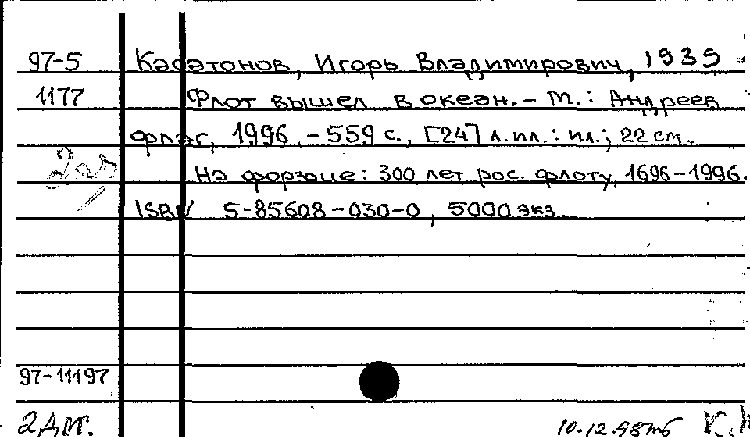 97-5 Касатонов, Игорь Владимирович, 1939 -
1177 Флот вышел в океан. - М.: Андреев
флаг, 1996. - 559 с., [24] л.ил.: ил.; 22 см.
На форзаце: 300 лет рос. флоту, 1696-1996.
ISBN 5-85608-030-0, 5000 экз.
97-11197